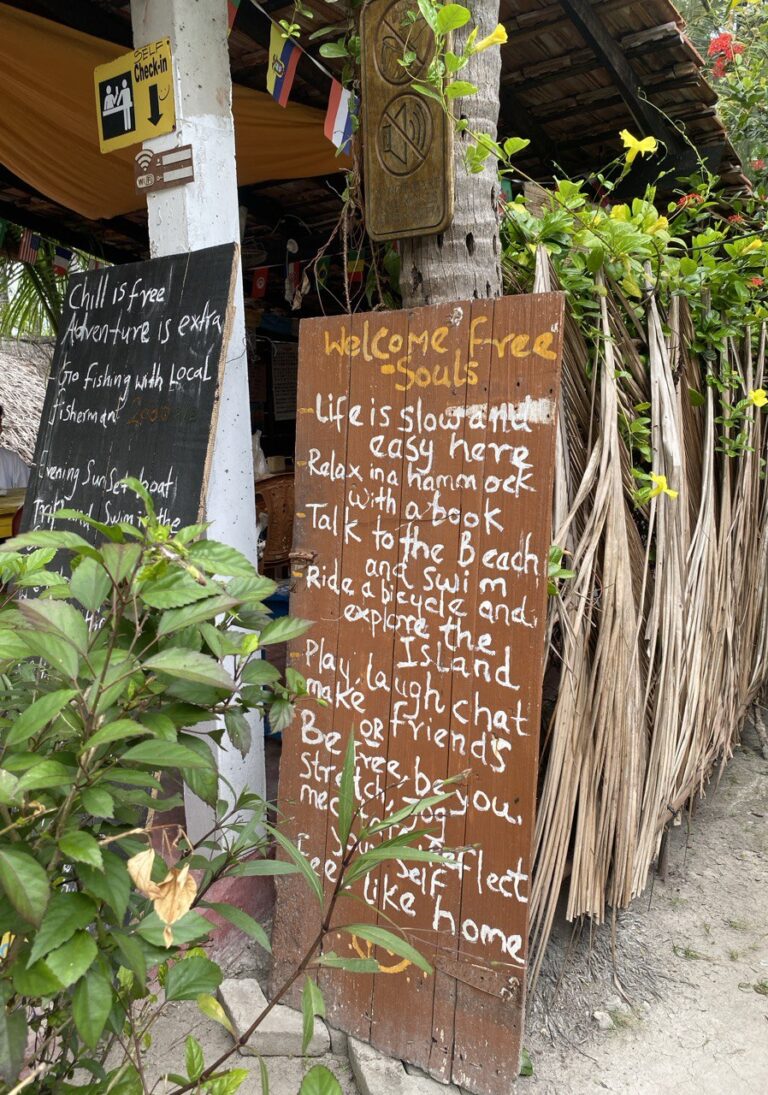 SELF
Check-in
WiFi
Chill is free
Adventure is extra
- Go fishing with Local
fisherman
Evening Sunset boat
Trip and Swim in the
Welcome free
-Souls
-Life is slow and
easy here
-Relax in a hammock
with a book
-Talk to the Beach
and swim
-Ride a bicycle and
explore the
Island
-Play, laugh chat
make friends
OR
Be free, be you,
stretch, jog
reflect
your self
Feel like home